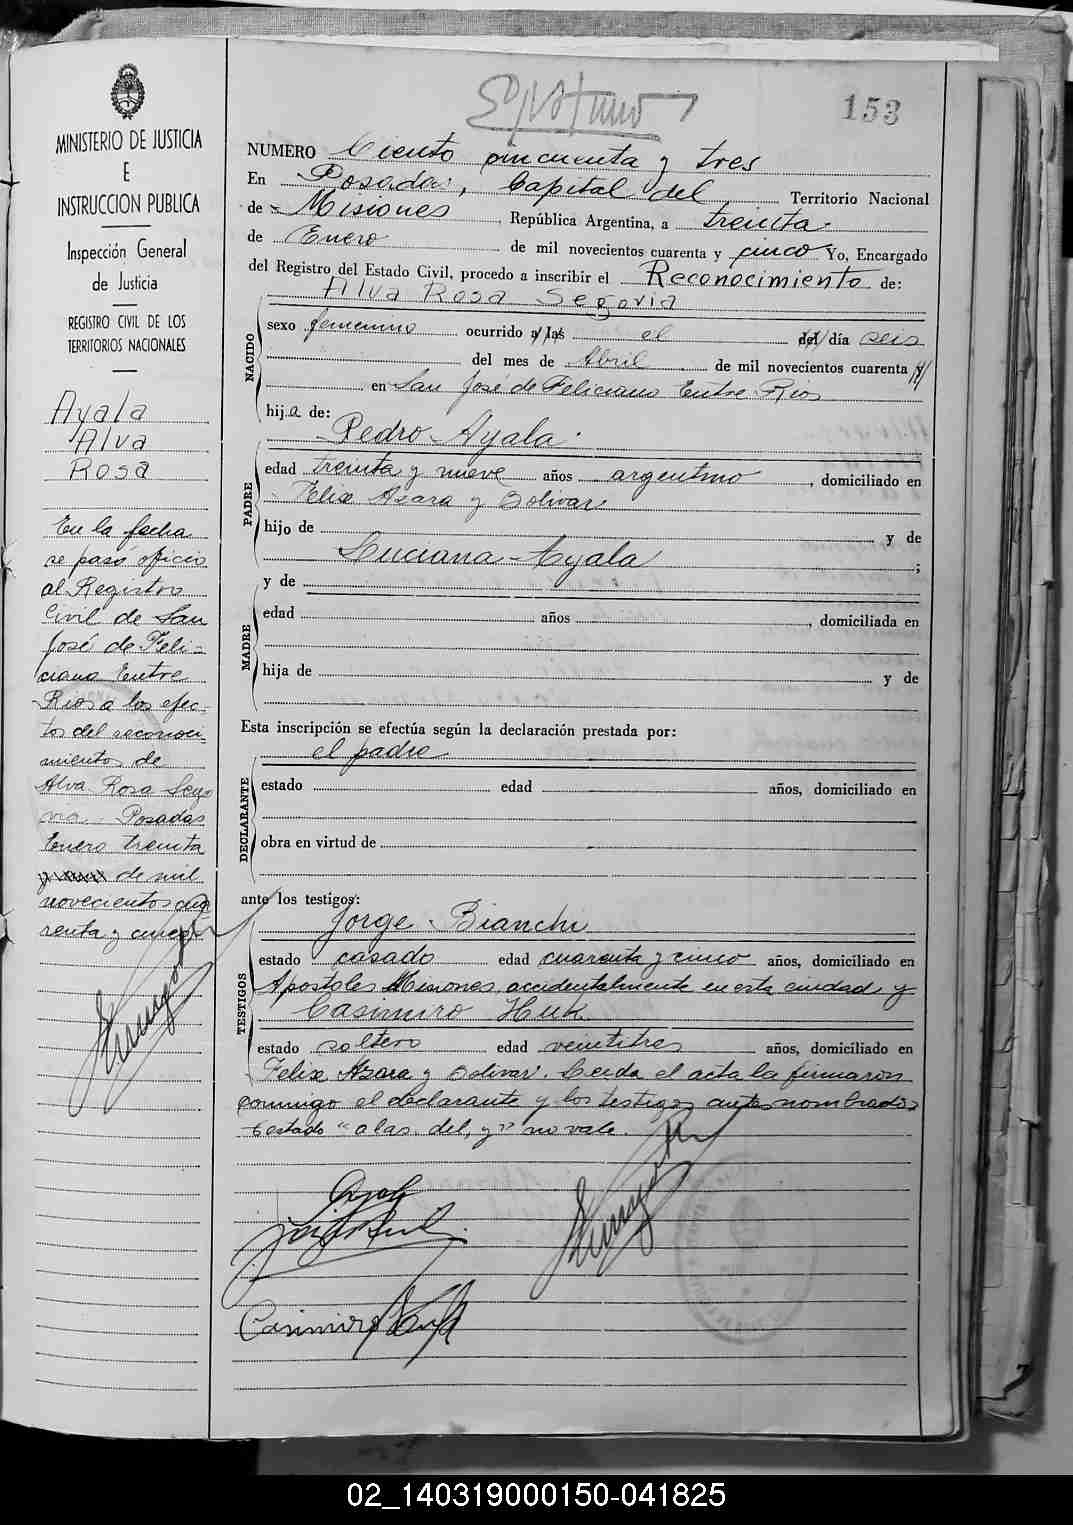 153
MINISTERIO DE JUSTICIA
E
INSTRUCCION PUBLICA
Inspección General
de Justicia
REGISTRO CIVIL DE LOS
TERRITORIOS NACIONALES
Ayala
Alva
Rosa
En la fecha
se pasó oficio
al Registro
Civil de San
José de Feli-
ciano Entre
Rios a los efec-
tos del reconoci-
miento de
Alva Rosa Sego
via. Posadas
Enero treinta
de mil
novecientos cua
renta y cinco
NUMERO Ciento cincuenta y tres
En Posadas, Capital del Territorio Nacional
de Misiones, República Argentina, a treinta
de Enero de mil novecientos cuarenta y cinco Yo, Encargado
del Registro del Estado Civil, procedo a inscribir el Reconocimiento de:
Alva Rosa Segovia
NACIDO
sexo femenino ocurrido a las el del día seis
del mes de Abril de mil novecientos cuarenta y
en San José de Feliciano Entre Rios
hija de:
Pedro Ayala
PADRE
edad treinta y nueve años argentino, domiciliado en
Felix Azara y Bolivar
hijo de y de
Luciana Ayala;
y de
MADRE
edad años, domiciliada en
hija de y de
Esta inscripción se efectúa según la declaración prestada por:
el padre
DECLARANTE
estado edad años, domiciliado en
obra en virtud de
ante los testigos:
Jorge Bianchi
TESTIGOS
estado casado edad cuarenta y cinco años, domiciliado en
Apostoles Misiones, accidentalmente en esta ciudad, y
Casimiro Huk
estado soltero edad veintitres años, domiciliado en
Felix Azara y Bolivar. Leida el acta la firmaron
conmigo el declarante y los testigos antes nombrados
testado "a las. del, y" no vale.
Ayala
Casimiro Huk
02_140319000150-041825